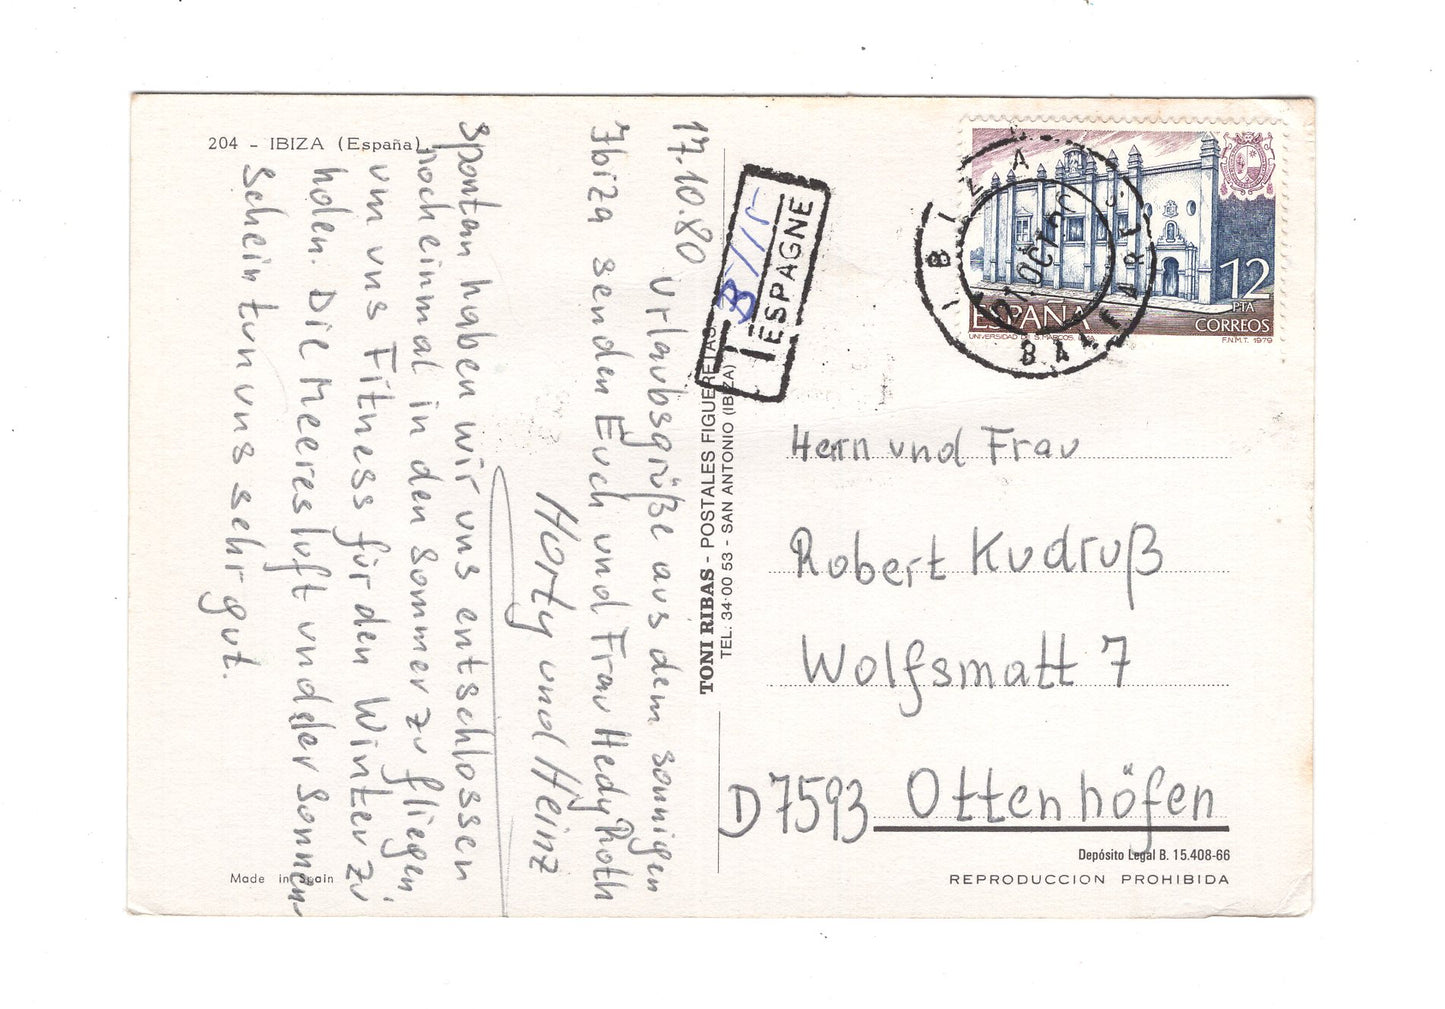 204 - IBIZA (España).
17.10.80
Urlaubsgrüße aus dem sonnigen
Ibiza senden Euch und Frau Hedy Roth
Horty und Heinz
Spontan haben wir uns entschlossen
noch einmal in den Sommer zu fliegen
um uns Fitness für den Winter zu
holen. Die Meeresluft und der Sonnen-
schein tun uns sehr gut.
Made in Spain
TONI RIBAS - POSTALES FIGUERETAS
TEL. 34 00 53 - SAN ANTONIO (IBIZA)
T
ESPAGNE
IBIZA
BALEARES
OCT
12
PTA
ESPAÑA
CORREOS
UNIVERSIDAD DE S. MARCOS.
F.N.M.T. 1979
Herrn und Frau
Robert Kudruß
Wolfsmatt 7
D 7593 Ottenhöfen
Depósito Legal B. 15.408-66
REPRODUCCION PROHIBIDA